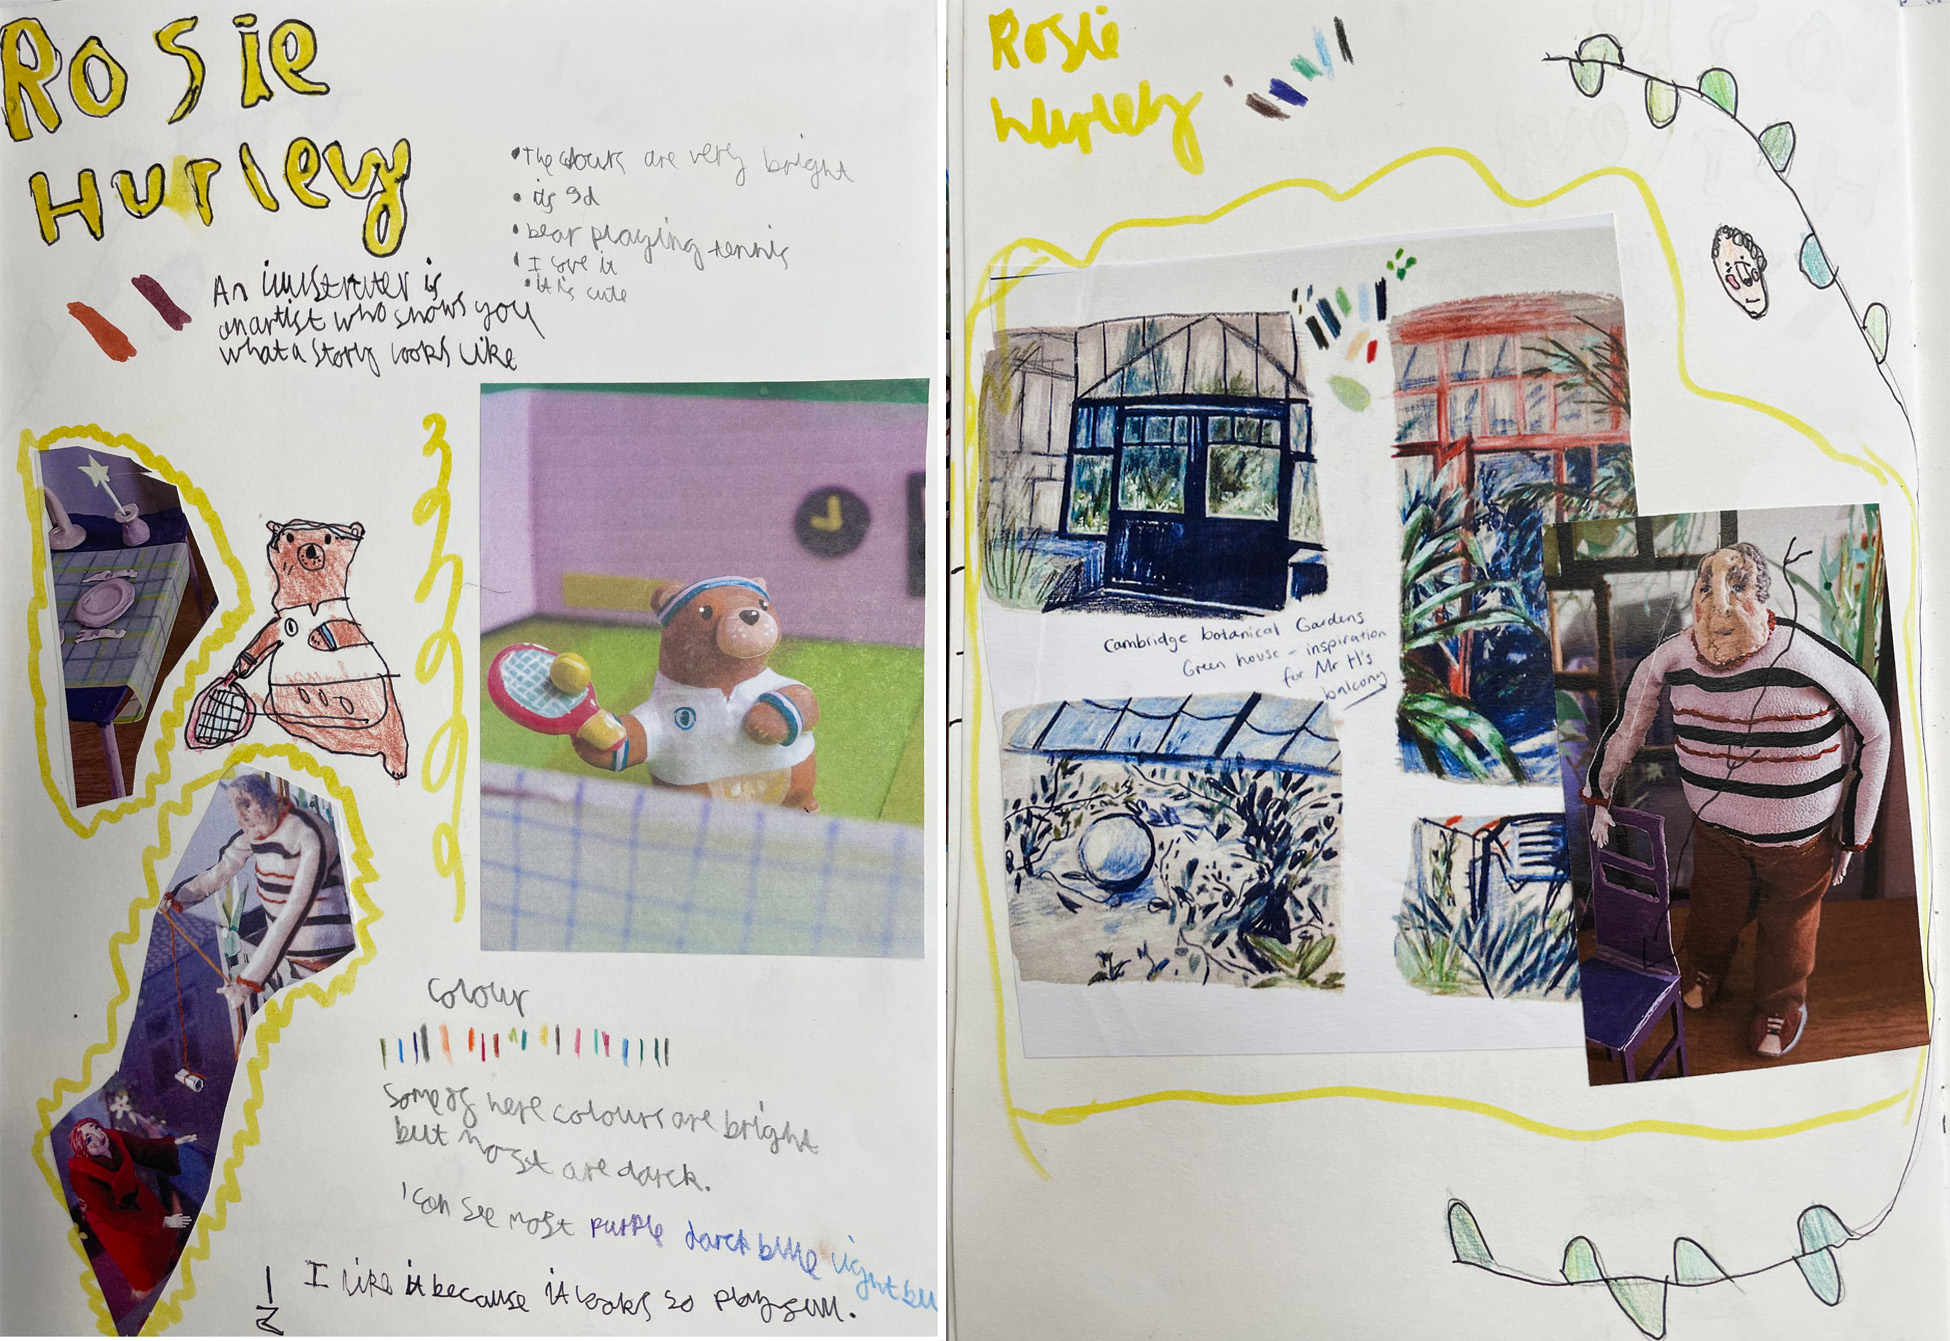 Rosie
Hurley
• The colours are very bright
• its 3d
• bear playing tennis
• I love it
• it is cute
An illustrater is
an artist who shows you
what a story looks like
Colour
Some of here colours are bright
but most are darck.
I can see most purple darck blue light blu
I like it because it looks so playfull.
Rosie
Hurley
Cambridge botanical Gardens
Green house - inspiration
for Mr H's
balcony